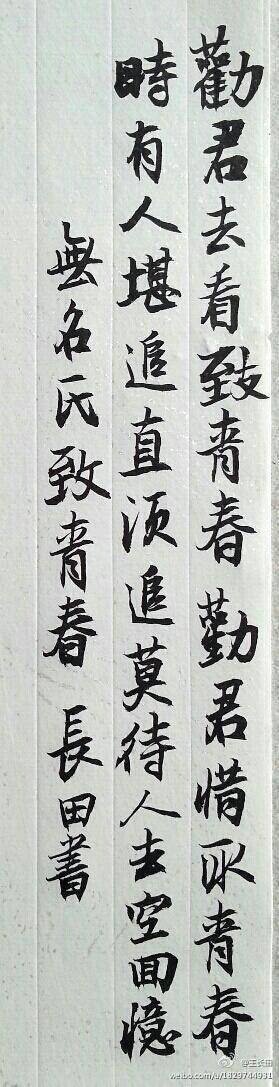 勸君去看致青春勸君惜取青春
時有人堪追直须追莫待人去空回憶
無名氏致青春 長田書
@王长田
weibo.com/u/1829744931